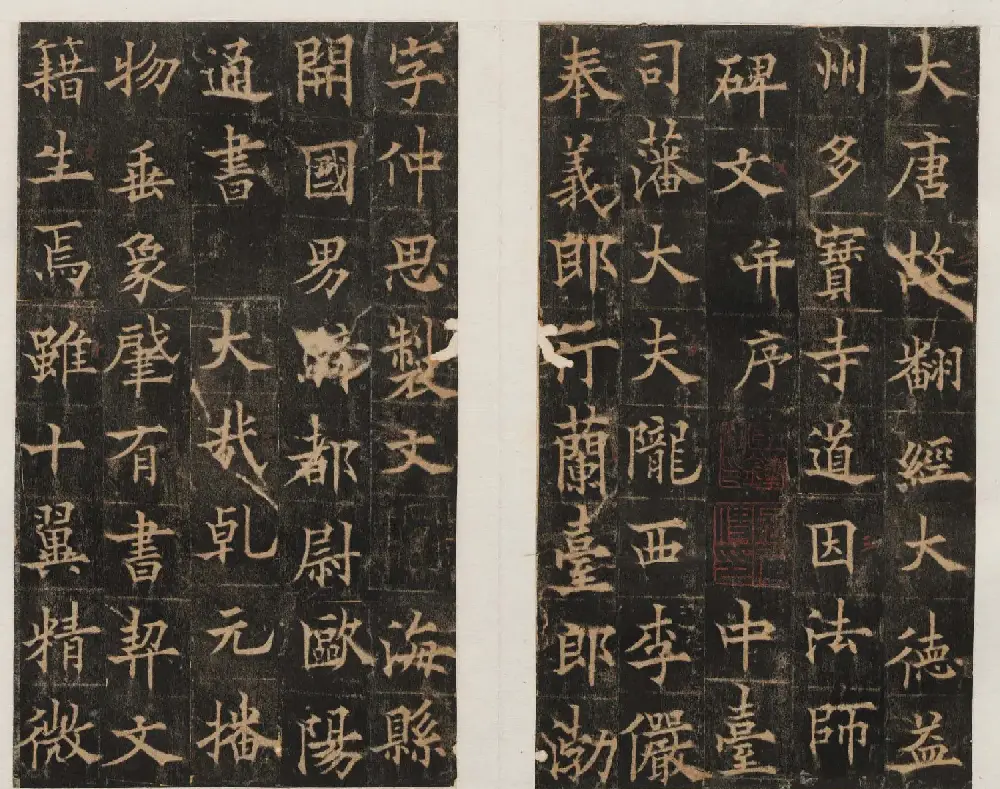 大唐故翻經大德益
州多寶寺道因法師
碑文并序 中臺
司藩大夫隴西李儼
奉義郎行蘭臺郎渤
字仲思製文 海縣
開國男騎都尉歐陽
通書 大哉乹元播
物垂象肈有書契文
籍生焉雖十翼精微